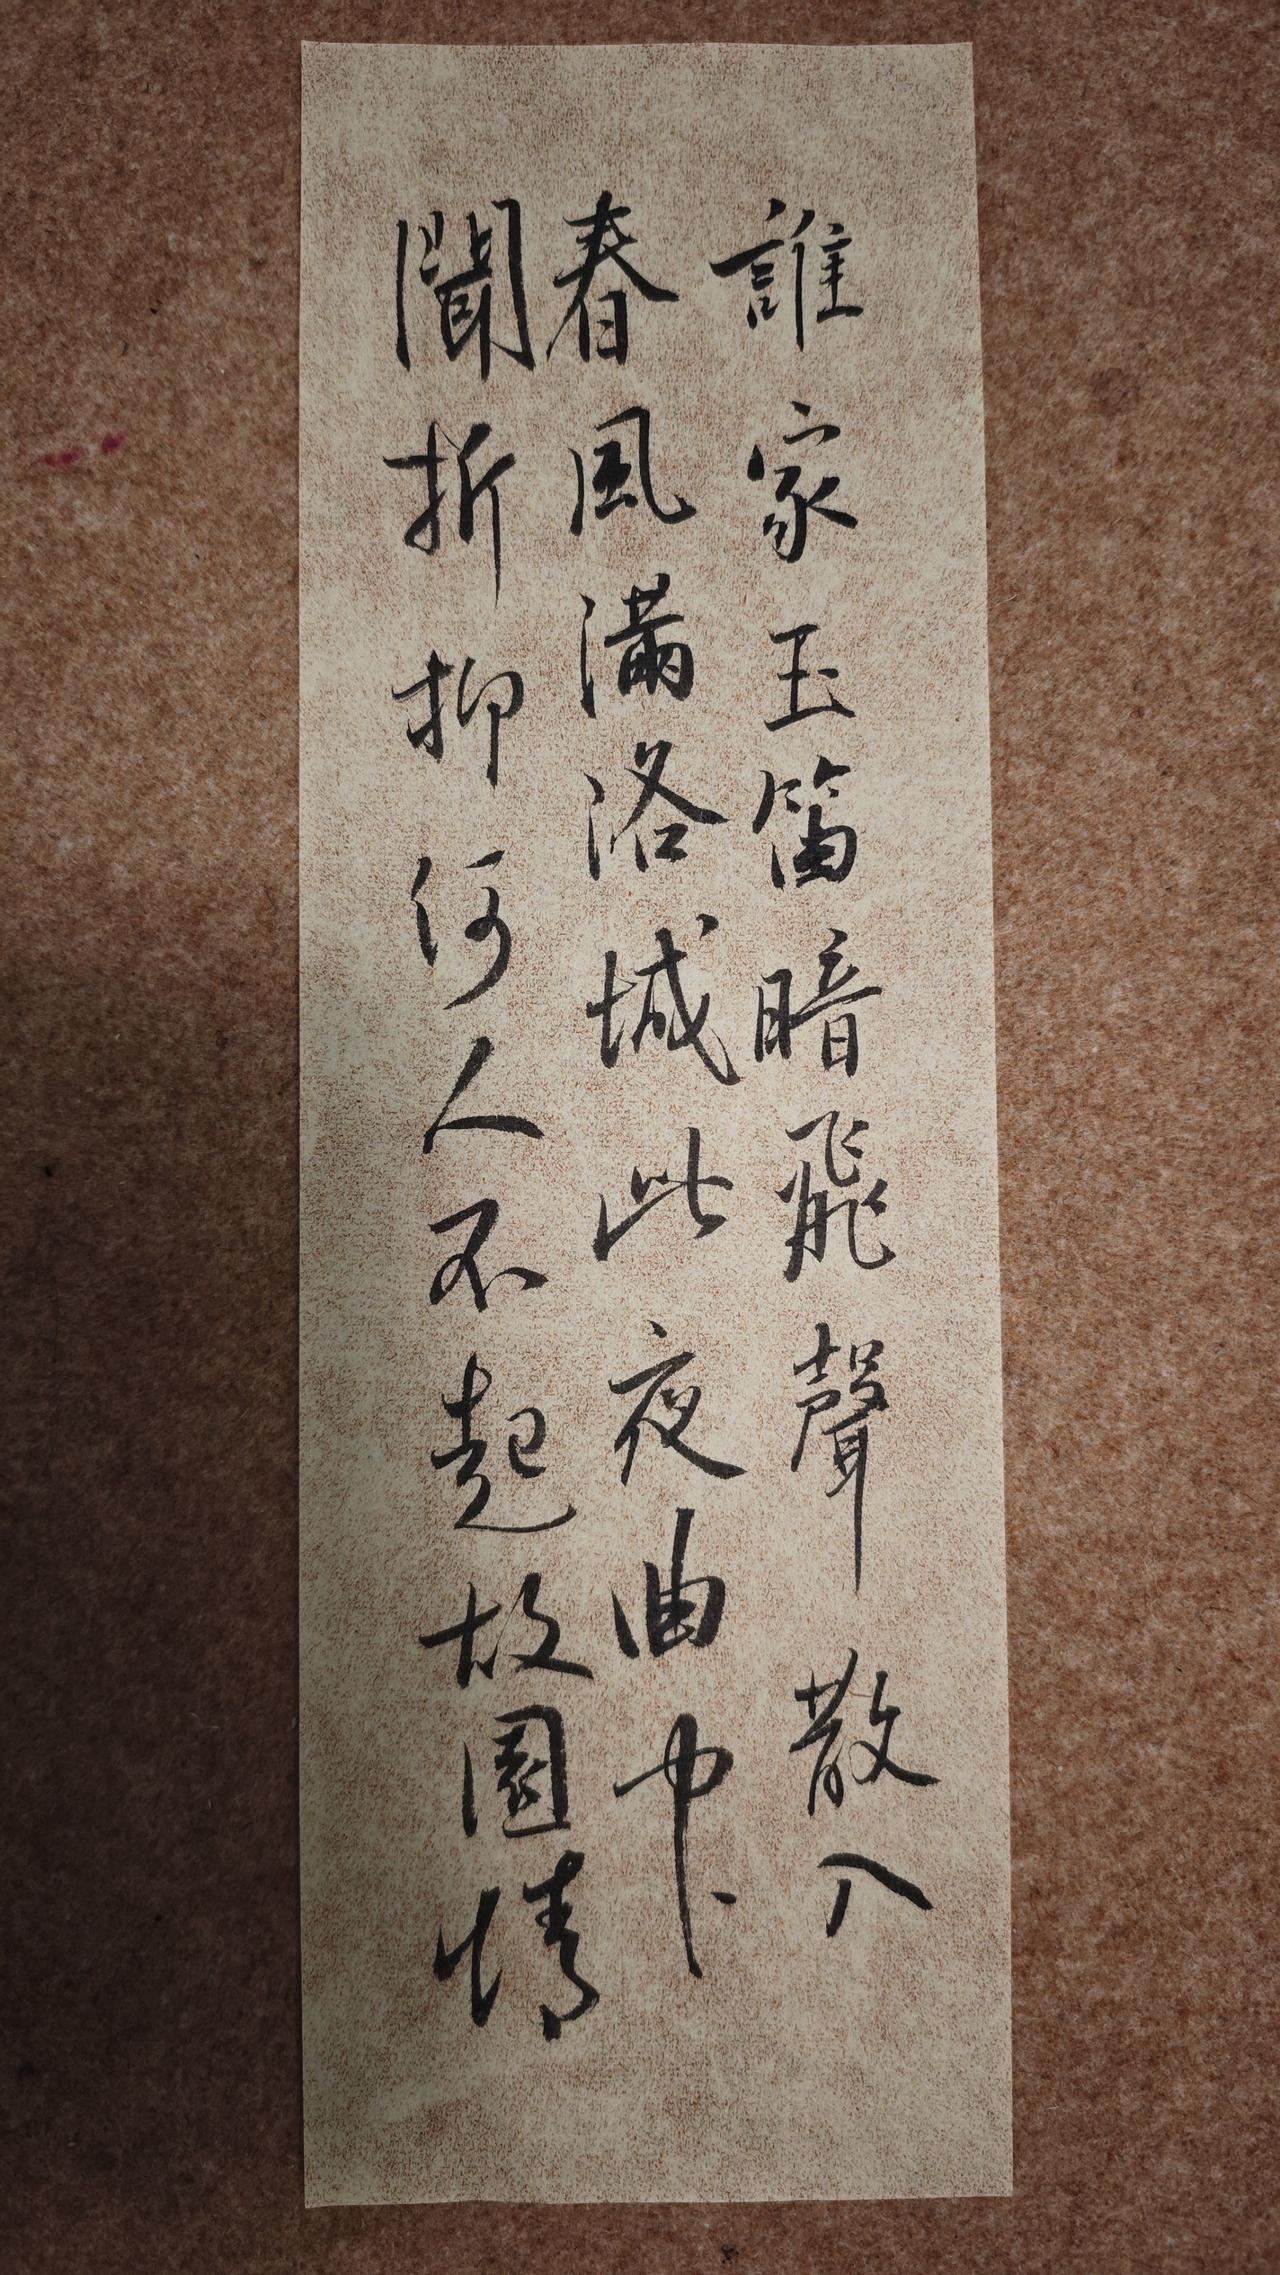 誰家玉笛暗飛聲散入
春風滿洛城此夜曲中
聞折抑何人不起故園情